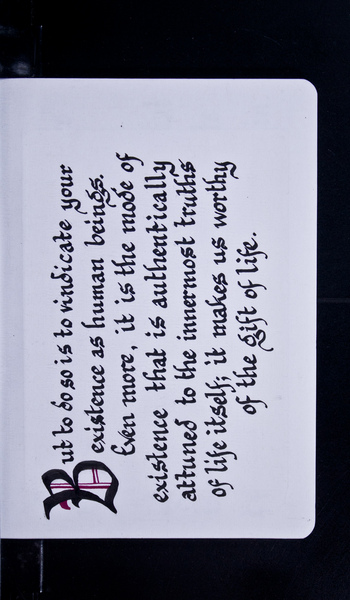 But to do so is to vindicate your
existence as human beings.
Even more, it is the mode of
existence that is authentically
attuned to the innermost truths
of life itself; it makes us worthy
of the gift of life.